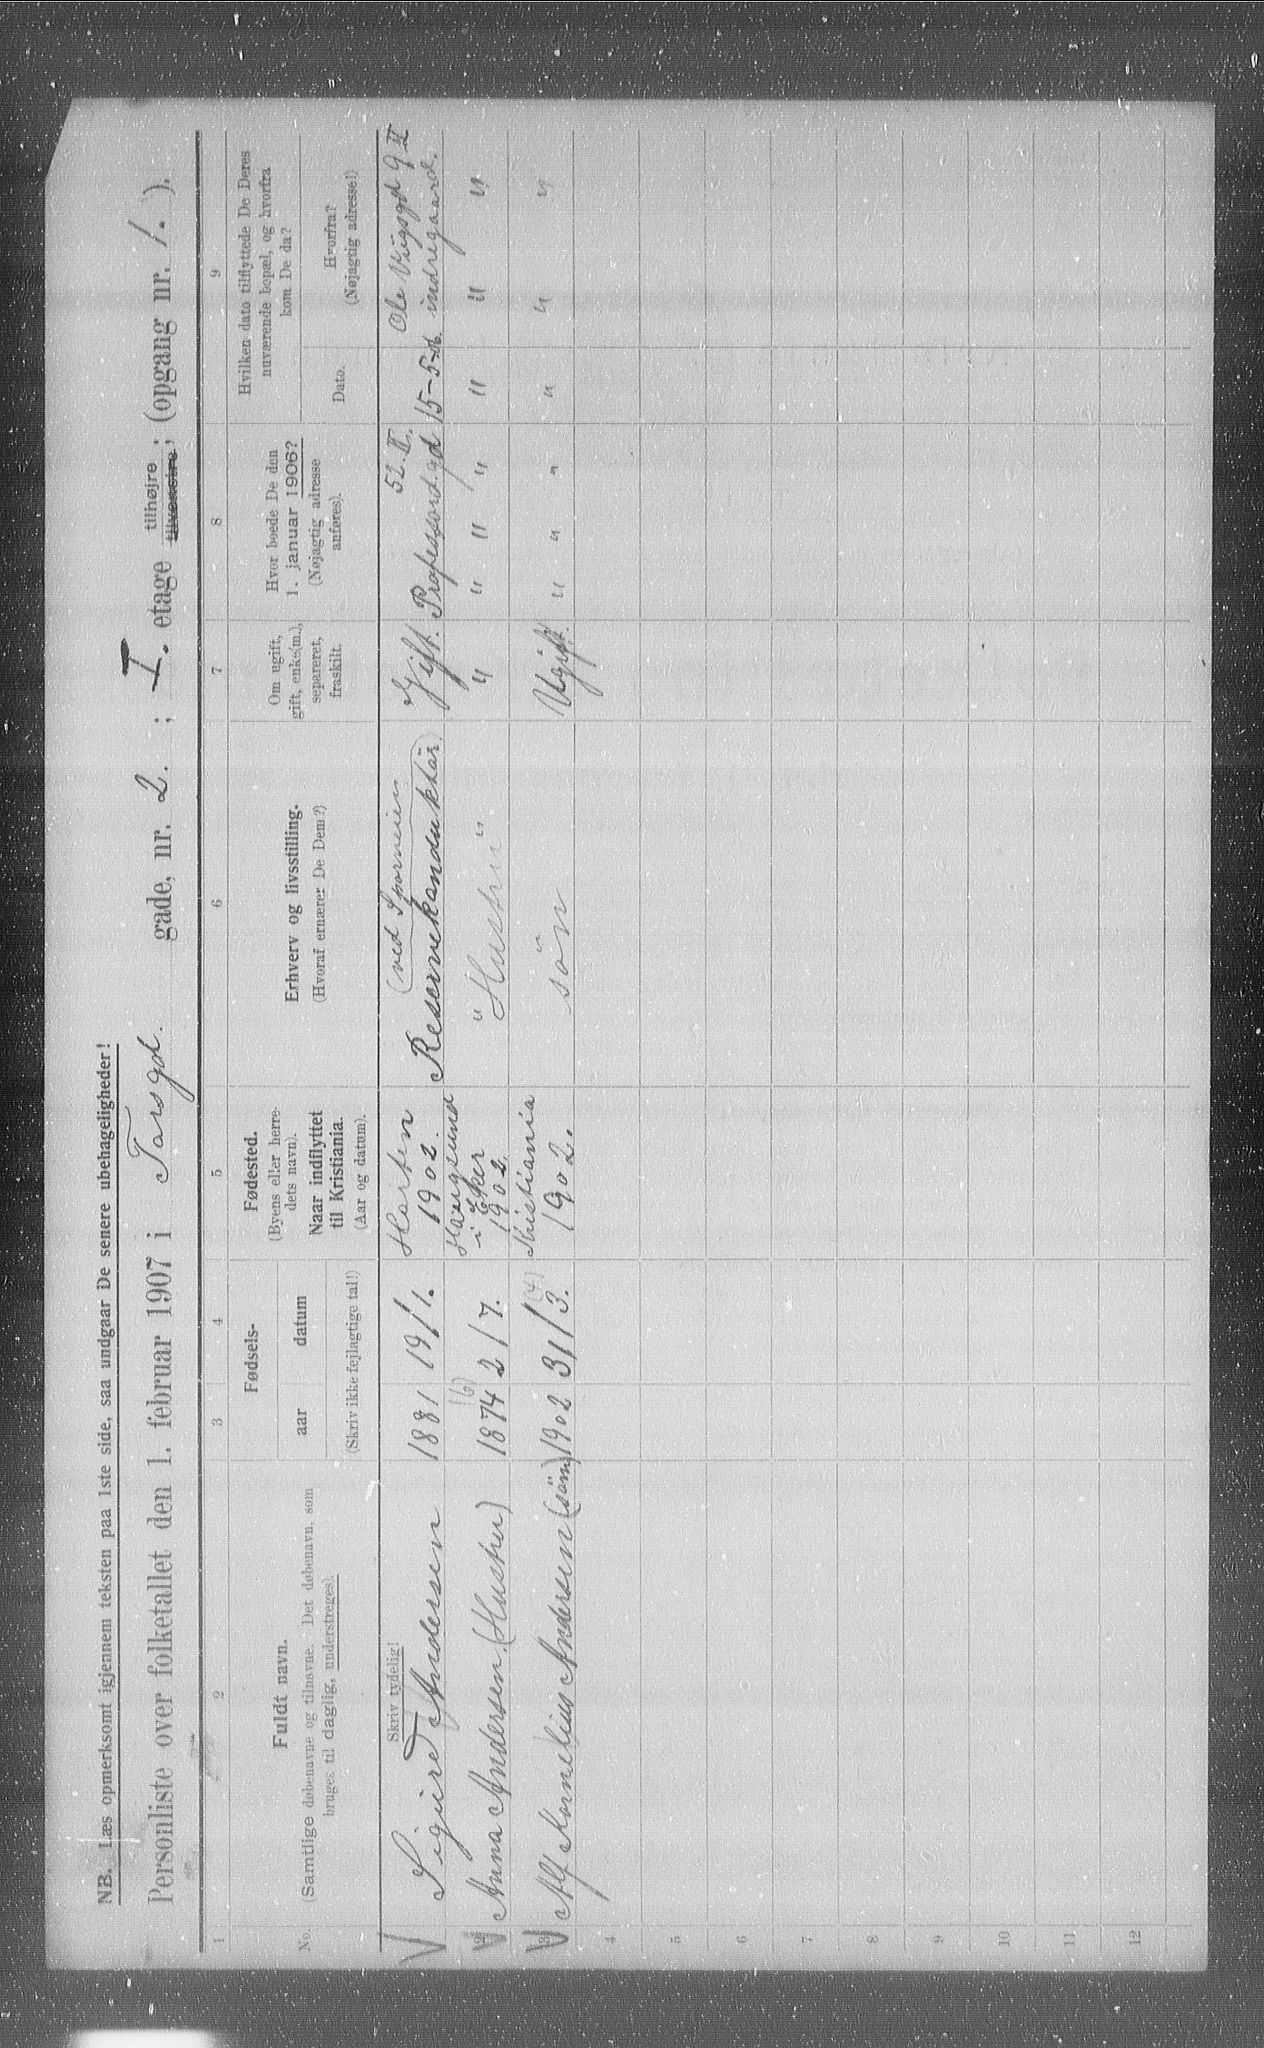 NB. Læs opmerksomt igjennem teksten paa 1ste side, saa undgaar De senere ubehageligheder!
Personliste over folketallet den 1. februar 1907 i Torsgd. gade, nr. 2. ; I. etage tilhøjre tilvenstre; (opgang nr. 1. ).
1 2 3 4 5 6 7 8 9
No.
Fuldt navn.
(Samtlige døbenavne og tilnavne. Det døbenavn, som
bruges til daglig, understreges).
Skriv tydelig!
Fødsels-
aar datum
(Skriv ikke fejlagtige tal!)
Fødested.
(Byens eller herre-
dets navn).
Naar indflyttet
til Kristiania.
(Aar og datum).
Erhverv og livsstilling.
(Hvoraf ernærer De Dem?)
Om ugift,
gift, enke(m.),
separeret,
fraskilt.
Hvor boede De den
1. januar 1906?
(Nøjagtig adresse
anføres).
Hvilken dato tilflyttede De Deres
nuværende bopæl, og hvorfra
kom De da?
Dato.
Hvorfra?
(Nøjagtig adresse!)
V Sigurd Andersen 1881 19/1. Horten
1902. (ved Sporveien
Reservekonduktör) Gift. 52.II.
Professord.gd 15-5-06. Ole Vigsgd 9 II
indregaard.
V 2 Anna Andersen. (Hustru) 1874 (6) 2/7. Haugsund
i Eker
1902. " Hustru " " " " " " " "
V 3 Alf Kornelius Andersen (sön) 1902 31/3. (4) Kristiania
1902. sön Ugift. " " " " " "
4
5
6
7
8
9
10
11
12